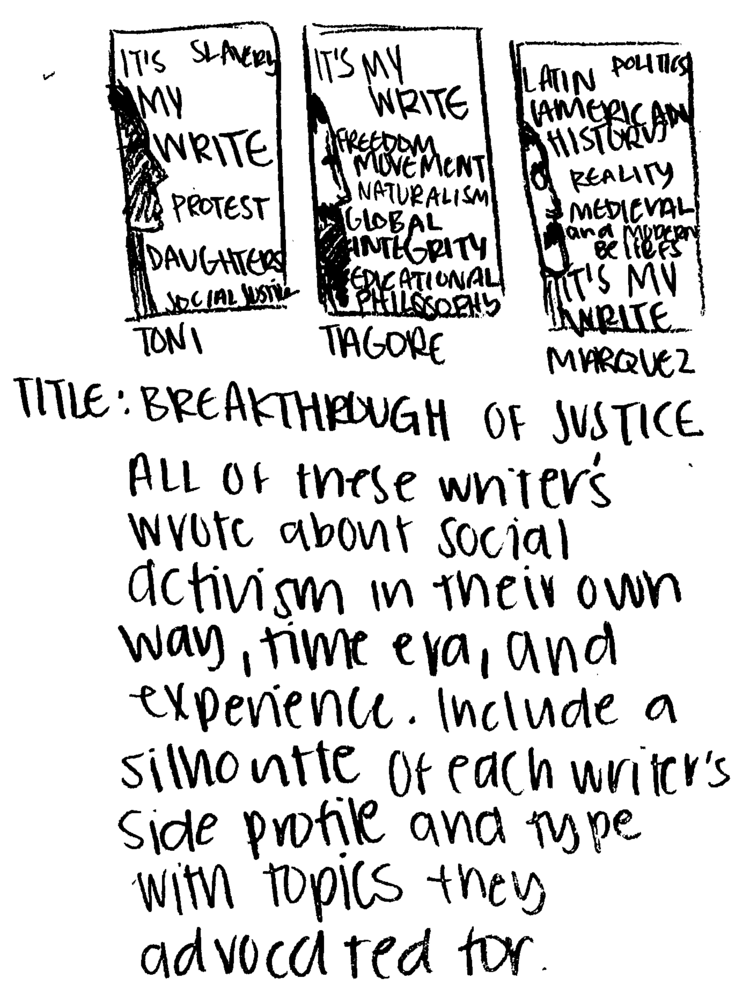 IT'S SLAVERY
MY
WRITE
PROTEST
DAUGHTERS
SOCIAL JUSTICE
TONI
IT'S MY
WRITE
FREEDOM
MOVEMENT
NATURALISM
GLOBAL
INTEGRITY
EDUCATIONAL
PHILOSOPHY
TAGORE
POLITICS
LATIN
AMERICAN
HISTORY
REALITY
MEDIEVAL
and MODERN
BELIEFS
IT'S MY
WRITE
MARQUEZ
TITLE: BREAKTHROUGH OF JUSTICE
ALL OF these writer's
wrote about social
activism in their own
way, time era, and
experience. Include a
silhoutte of each writer's
side profile and type
with topics they
advocated for.